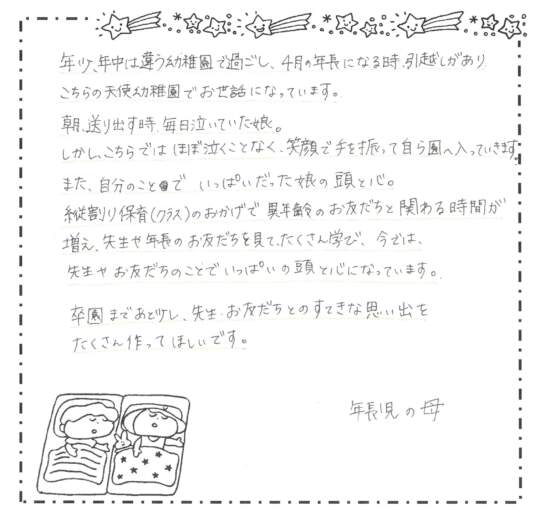 年少、年中は違う幼稚園で過ごし、4月の年長になる時、引越しがあり
こちらの天使幼稚園でお世話になっています。
朝、送り出す時、毎日泣いていた娘。
しかし、こちらではほぼ泣くことなく、笑顔で手を振って自ら園へ入っていきます。
また、自分のことで いっぱいだった娘の頭と心。
縦割り保育(クラス)のおかげで異年齢のお友だちと関わる時間が
増え、先生や年長のお友だちを見て、たくさん学び、今では、
先生やお友だちのことでいっぱいの頭と心になっています。
卒園まであと少し、先生・お友だちとのすてきな思い出を
たくさん作ってほしいです。
年長児の母